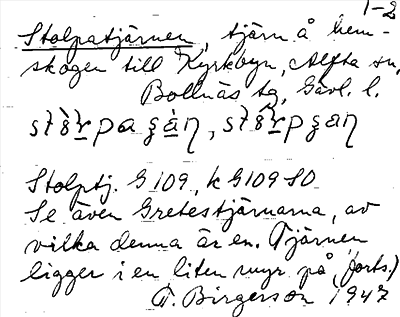 1-2
Stolpatjärnen, tjärn å hem-
skogen till Kyrkbyn, Alfta sn,
Bollnäs tg, Gävl. l.
Stolptj. G 109, k G109 SO
Se även Gretestjärnarna, av
vilka denna är en. Tjärnen
ligger i en liten myr på (forts.)
T. Birgersson 1947